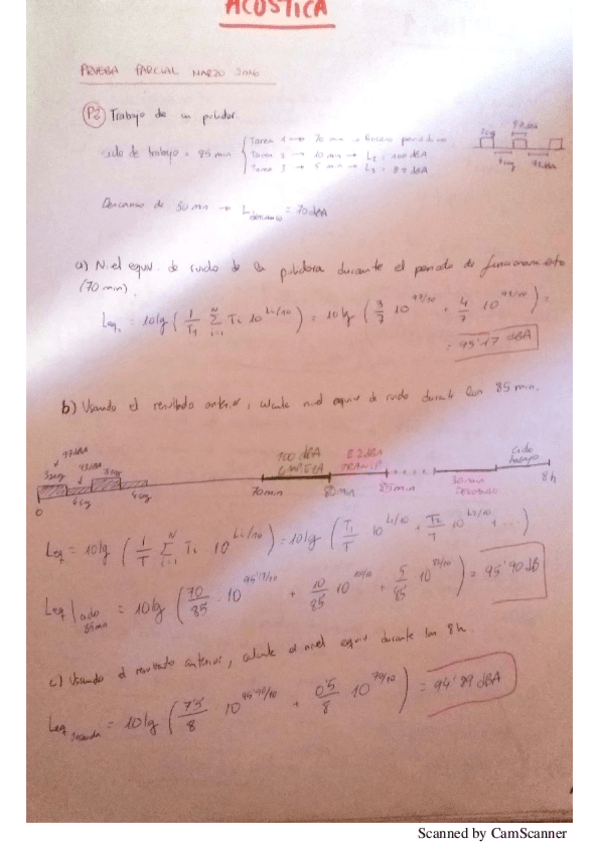 ACÚSTICA
PRUEBA PARCIAL MARZO
P2 Trabajo de un pulidor.
Ciclo de trabajo = 85 min
Tarea 1 → 70 min → Ruido periódico
Tarea 2 → 10 min → L2 = 100 dBA
Tarea 3 → 5 min → L3 =
Descanso de 30 min → L descanso = 70 dBA
a) Nivel equiv. de ruido de la pulidora durante el periodo de funcionamiento
(70 min).
Leq1 = 10lg ( 1/T1 Σ i=1 N Ti 10^Li/10 ) = 10lg ( 3/7 10 + 4/7 10 ) =
= 95'17 dBA
b) Usando el resultado anterior, calcule nivel equiv de ruido durante los 85 min.
97dBA
3seg 4seg 3seg 4seg
100 dBA
LIMPIEZA
82dBA
TRANSP
30min
Ciclo
trabajo
0 70min 80min 85min 8h
Leq = 10lg ( 1/T Σ i=1 N Ti 10^Li/10 ) = 10lg ( T1/T 10^L1/10 + T2/T 10^L2/10 + ... )
Leq ciclo 85min = 10lg ( 70/85 · 10^95'17/10 + 10/85 10 + 5/85 10 ) = 95'90 dB
c) Usando el resultado anterior, calcule el nivel equiv durante las 8h.
Leq jornada = 10lg ( 7'5/8 10^95'90/10 + 0'5/8 10^70/10 ) = 94'89 dBA
Scanned by CamScanner